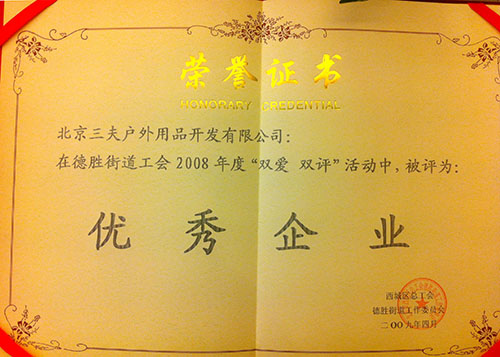 荣誉证书
HONORARY CREDENTIAL
北京三夫户外用品开发有限公司：
在德胜街道工会2008年度“双爱 双评”活动中，被评为：
优秀企业
西城区总工会
德胜街道工作委员会
二〇〇九年四月